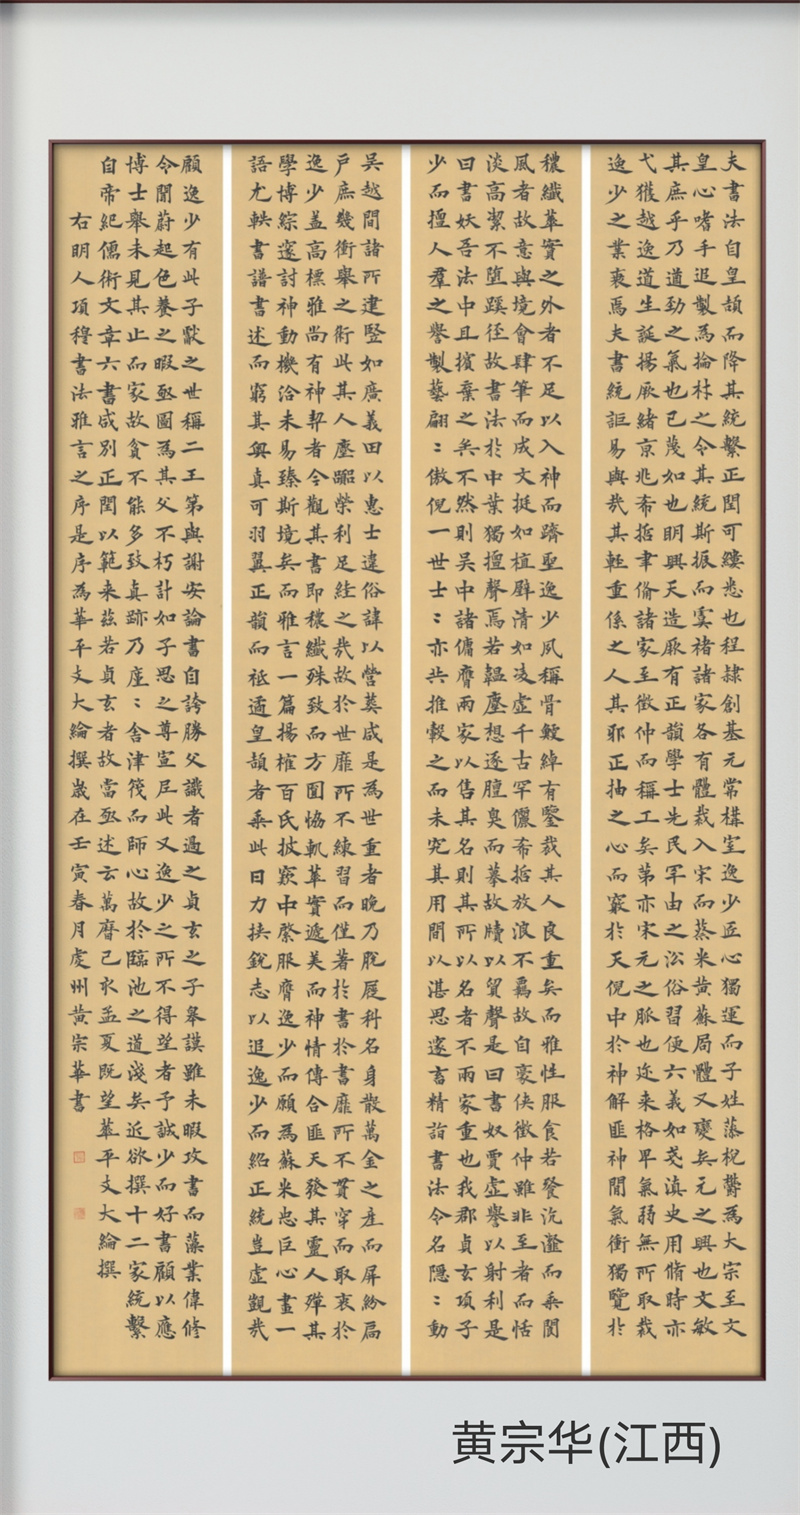 夫書法自皇頡而降其統繫正閏可縷悉也程隸創基元常構室逸少匠心獨運而子姓蒸棿欝為大宗至文
皇心嗜手追製為掄材之令其統斯振而虞褚諸家各有體裁入宋而蔡米黄蘇局體又變矣元之興也文敏
其庶乎乃遒勁之氣也已蔑如也明興天造厥有正韻學士先民罕由之訟俗習便六義如戔滇史用脩時亦
弋獲越逸道生誕揚厥緒京兆希哲聿脩諸家至徵仲而稱工矣第亦宋元之脈也迩来格早氣弱無所取裁
逸少之業衰焉夫書統詎易與㢤其軽重係之人其邪正抽之心而窾扵天倪中扵神解匪神閒氣衝獨覽扵
穠纖華實之外者不足以入神而躋聖逸少夙稱骨鯁綽有鑒裁其人良重矣而雅性服食若發沆瀣而乘閬
風者故意與境會肆筆而成文挺如植壁清如凌虚千古罕儷希括放浪不羈故自豪侠徵仲雖非至者而恬
淡高潔不墮蹊径故書法扵中葉獨擅聲焉若韞塵想逐膻臭而摹故牘以貿聲是曰書奴賈虚譽以射利是
曰書妖吾法中且擯棄之矣不然則吴中諸傭膺兩家以售其名則其所以名者不兩家重也我郡貞玄項子
少而擅人羣之譽製藝翩：傲倪一世士：亦共推轂之而未究其用間以湛思邃言精詣書法令名隠：動
吴越間諸所建竪如廣義田以惠士違俗諱以營葬咸是為世重者晚乃脱屐科名身散萬金之産而屏紛扃
戸庶幾衝舉之術此其人塵𨄔榮利足絓之㢤故扵世靡所不練習而僅著扵書扵書靡所不貫穿而取衷扵
逸少盖高標雅尚有神契者今觀其書即穠纖殊致而方圓恊軌華實遞美而神情傳合匪天發其靈人殫其
學博綜邃討神動機洽未易臻斯境矣而雅言一篇揚榷百氏披窾中綮服膺逸少而願為蘇米忠臣心畫一
語尤軼書譜書述而窮其奥真可羽翼正韻而祗遹皇頡者乘此日力抉鋭志以追逸少而紹正統豈虚觀㢤
顧逸少有此子獻之世稱二王第與謝安論書自誇勝父識者過之貞玄之子皋謨雖未暇攻書而藻業偉修
令聞蔚起色養之暇亟圖為其父不朽計如子思之尊宣尼此又逸少之所不得望者予誠少而好書顧以應
博士舉未見其止而家故貪不能多致真跡乃㕓：舍津筏而師心故扵臨池之道淺矣近欲撰十二家統繫
自帝紀儒術文章六書咸别正閏以範来兹若貞玄者故當亟述云萬曆己水孟夏既望華平支大綸撰
右明人項穆書法雅言之序是序為華平支大綸撰嵗在壬寅春月虔州黄宗華書
黄宗华(江西)